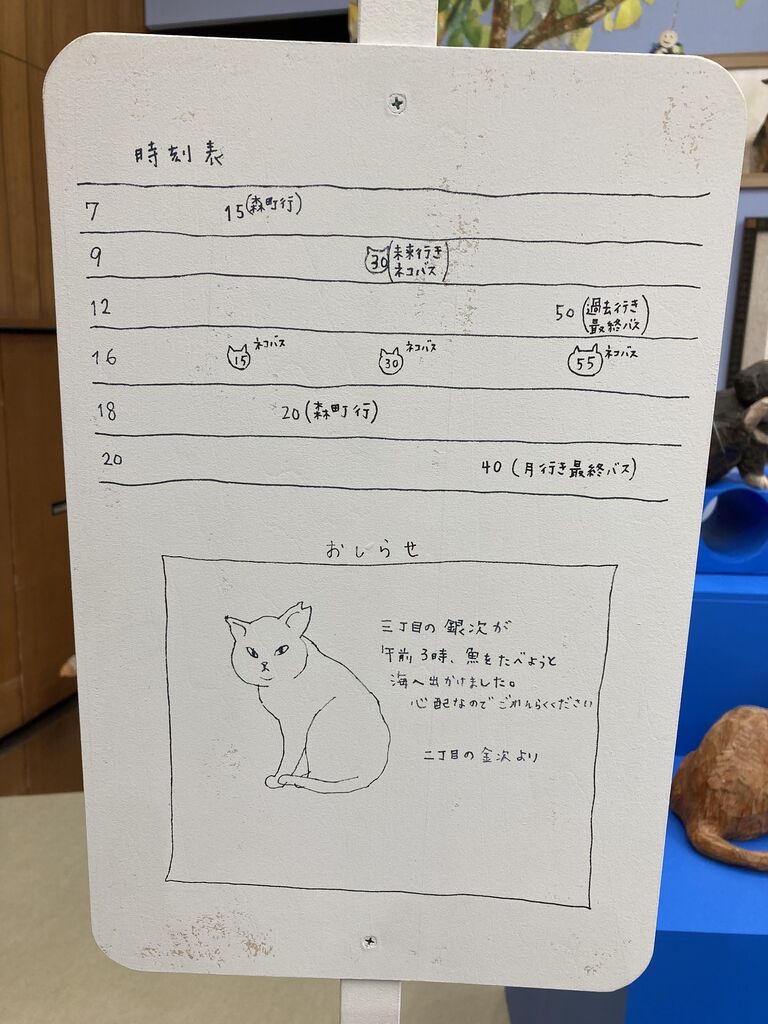 時刻表
7 15(森町行)
9 30(未来行き
ネコバス)
12 50(過去行き
最終バス)
16 15 ネコバス 30 ネコバス 55 ネコバス
18 20(森町行)
20 40(月行き最終バス)
おしらせ
三丁目の銀次が
午前3時、魚をたべようと
海へ出かけました。
心配なのでごれんらくください
二丁目の金次より